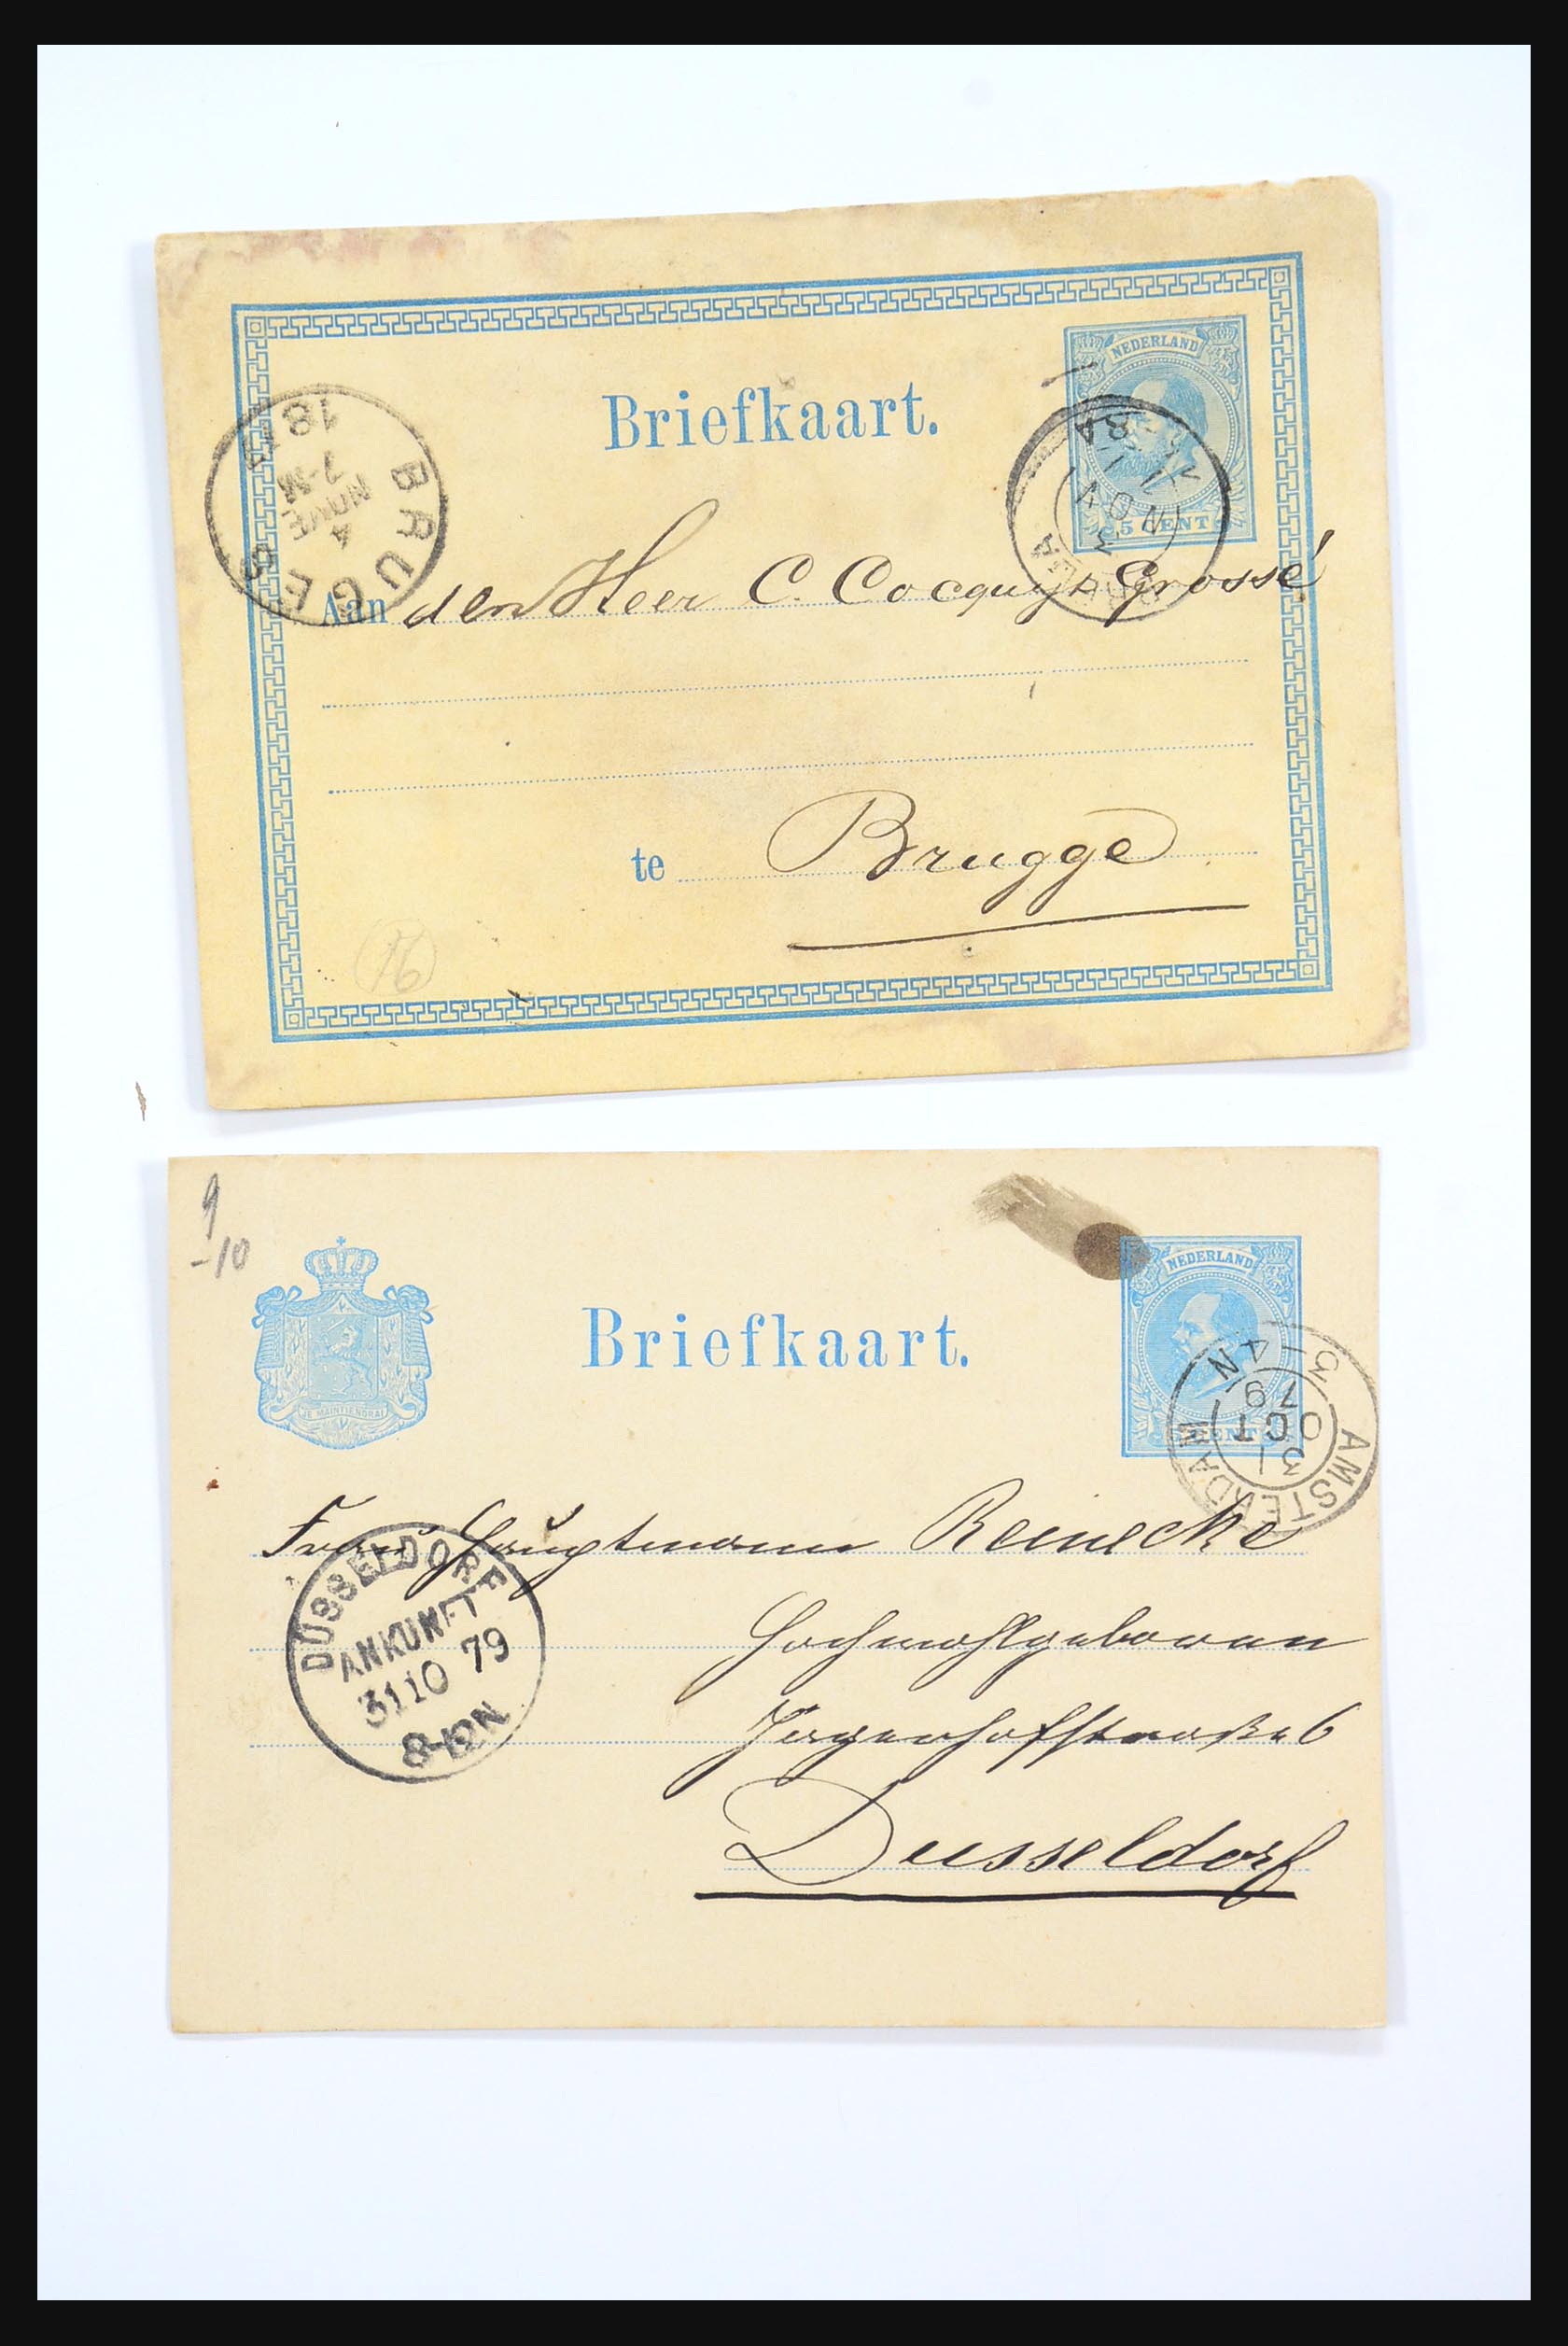 NEDERLAND
Briefkaart.
5 CENT
BRUGES
4
NOVE
7-M
18
3
NOV
Aan den Heer C. Cocquyt Grossé
te Brugge
16
9
-10
NEDERLAND
JE MAINTIENDRAI
Briefkaart.
CENT
AMSTERDAM
31
OCT
79
4N
Frau Hauptmann Reinecke
DÜSSELDORF
ANKUNFT
31 10 79
8-12N
Hochwohlgeboren
Jägerhofstraße 6
Dusseldorf